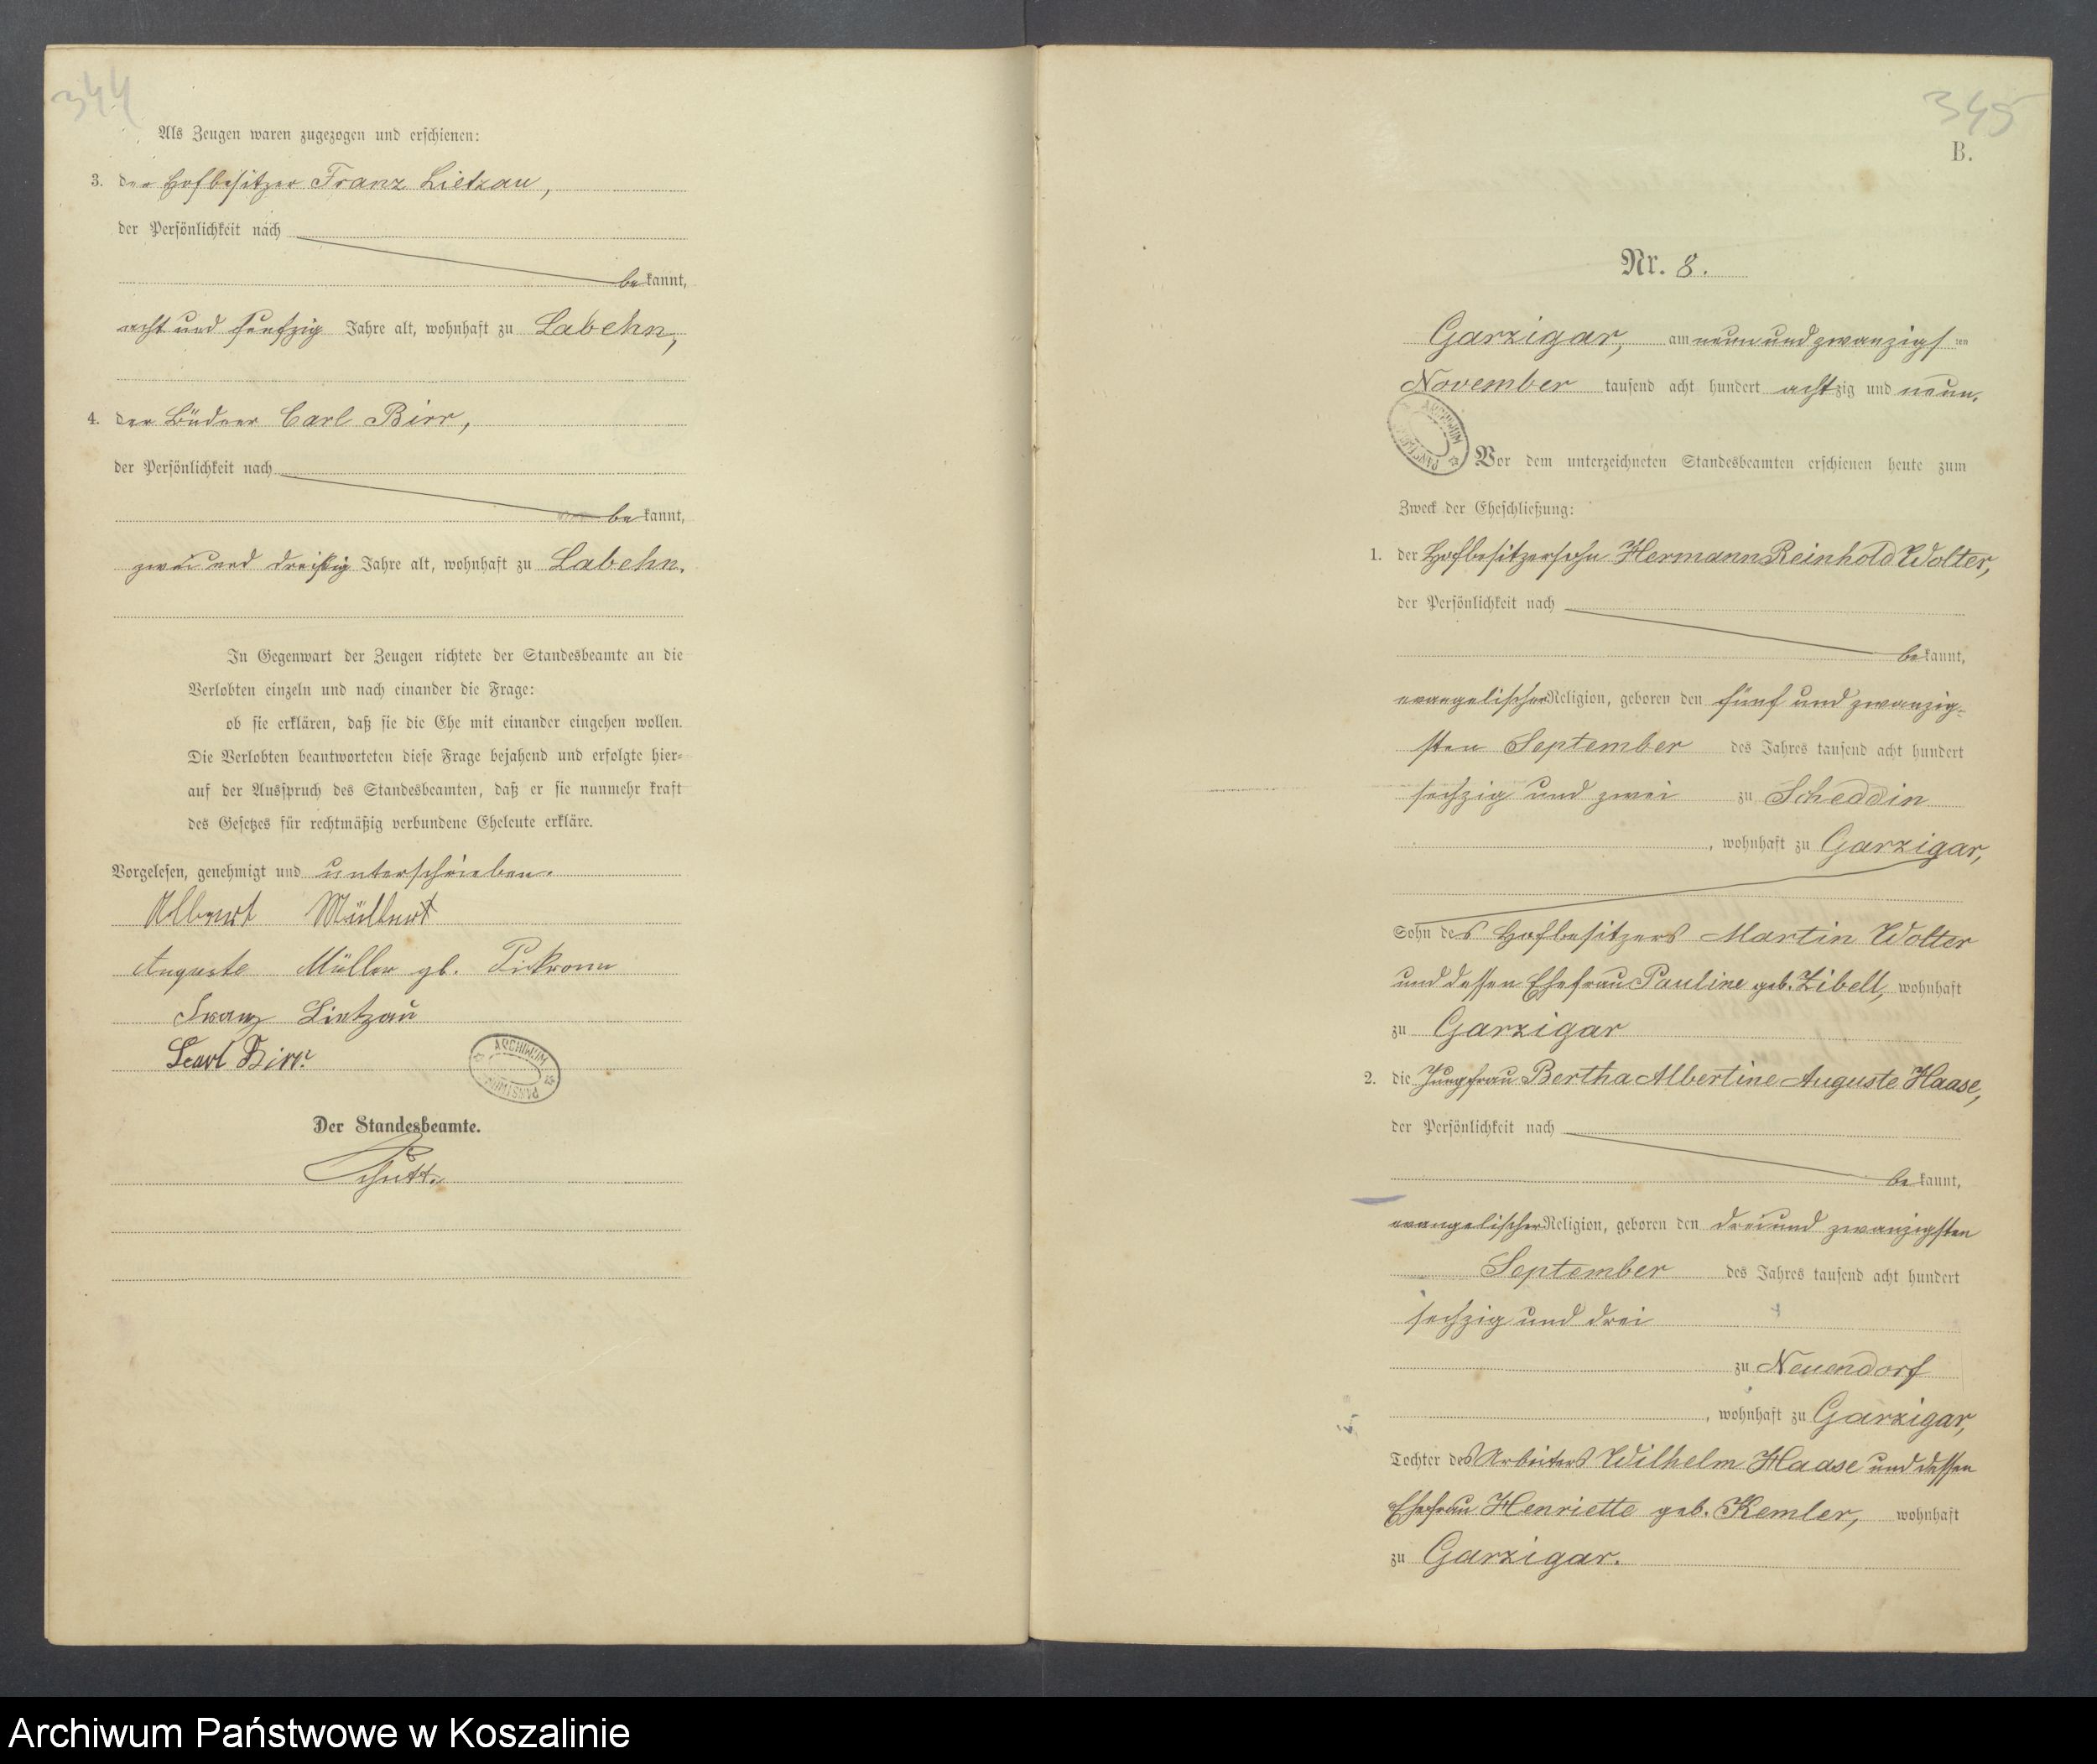 344
Als Zeugen waren zugezogen und erschienen:
3. der Hofbesitzer Franz Lietzau,
der Persönlichkeit nach
bekannt,
acht und fünfzig Jahre alt, wohnhaft zu Labehn,
4. der Büdner Carl Birr,
der Persönlichkeit nach
bekannt,
zwei und dreißig Jahre alt, wohnhaft zu Labehn.
In Gegenwart der Zeugen richtete der Standesbeamte an die
Verlobten einzeln und nach einander die Frage:
ob sie erklären, daß sie die Ehe mit einander eingehen wollen.
Die Verlobten beantworteten diese Frage bejahend und erfolgte hier-
auf der Ausspruch des Standesbeamten, daß er sie nunmehr kraft
des Gesetzes für rechtmäßig verbundene Eheleute erkläre.
Vorgelesen, genehmigt und unterschrieben.
Albert
Auguste Müller gb.
Franz Lietzau
Carl Birr.
ARCHIWUM PAŃSTWOWE
Der Standesbeamte.
345
B.
Nr. 8.
Garzigar, am neun und zwanzigsten
November tausend acht hundert achtzig und neun.
ARCHIWUM PAŃSTWOWE
Vor dem unterzeichneten Standesbeamten erschienen heute zum
Zweck der Eheschließung:
1. der Hofbesitzersohn Hermann Reinhold Wolter,
der Persönlichkeit nach
bekannt,
evangelischer Religion, geboren den fünf und zwanzig-
sten September des Jahres tausend acht hundert
sechzig und zwei zu Scheddin
, wohnhaft zu Garzigar,
Sohn des Hofbesitzers Martin Wolter
und dessen Ehefrau Pauline geb. Zibell, wohnhaft
zu Garzigar
2. die Jungfrau Bertha Albertine Auguste Haase,
der Persönlichkeit nach
bekannt,
evangelischer Religion, geboren den drei und zwanzigsten
September des Jahres tausend acht hundert
sechzig und drei
zu Neuendorf
, wohnhaft zu Garzigar,
Tochter des Arbeiters Wilhelm Haase und dessen
Ehefrau Henriette geb. Kemler, wohnhaft
zu Garzigar.
Archiwum Państwowe w Koszalinie